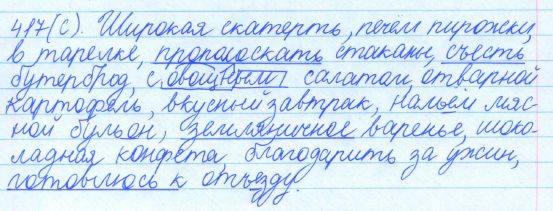 417(с). Широкая скатерть, печём пирожки,
в тарелке, прополоскать стаканы, съесть
бутерброд, с овощным салатом, отварной
картофель, вкусный завтрак, нальём мяс-
ной бульон, земляничное варенье, шоко-
ладная конфета, благодарить за ужин,
готовлюсь к отъезду.